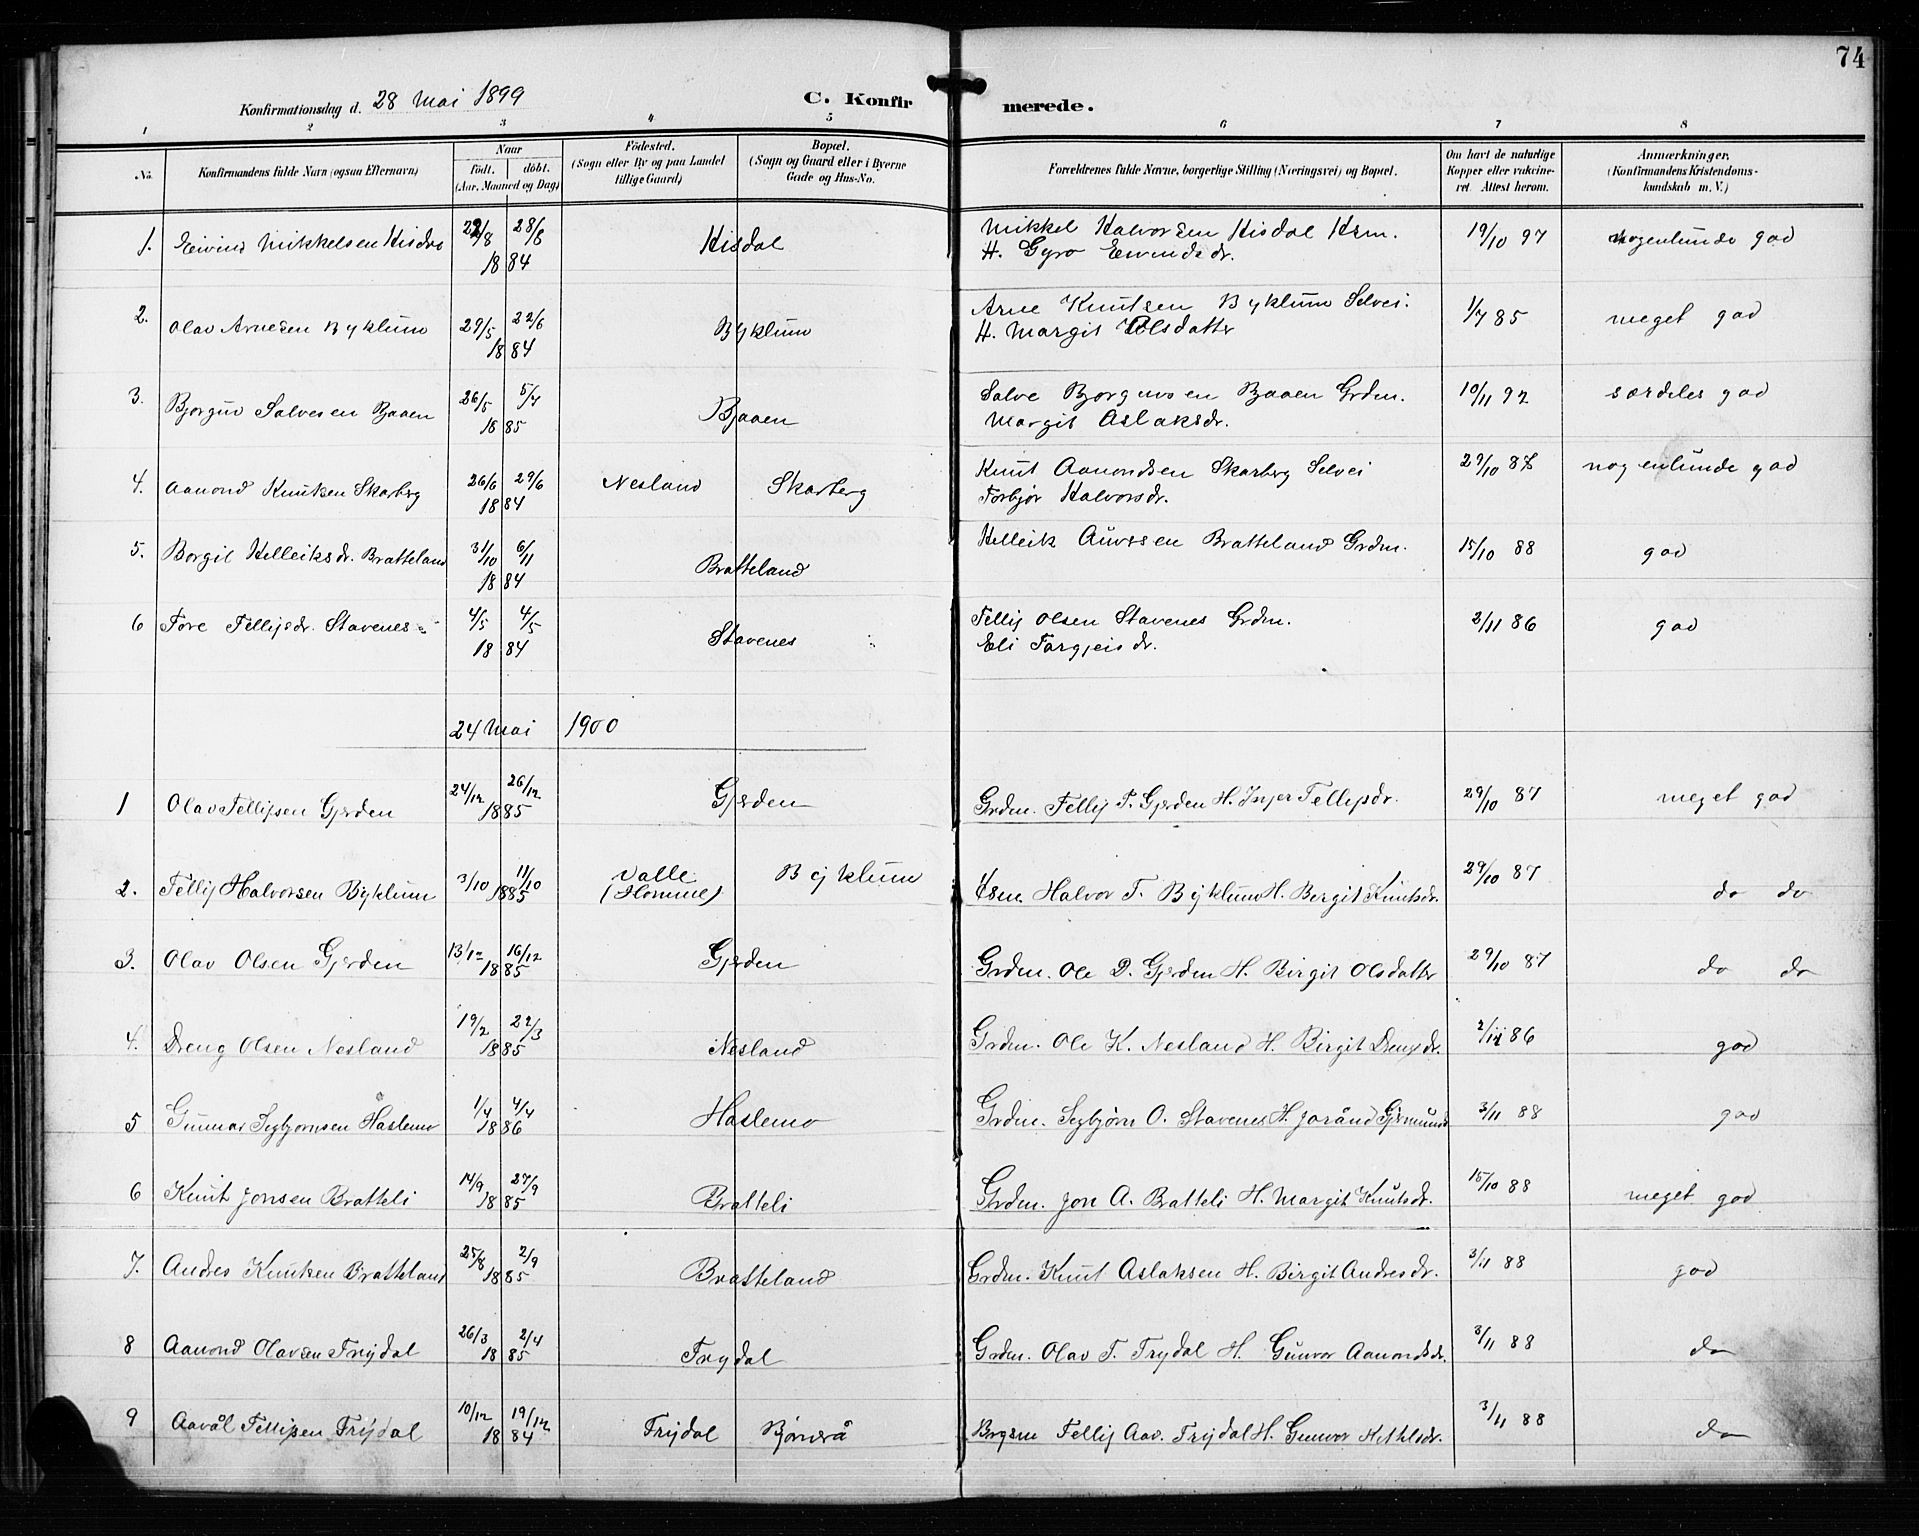 74
Konfirmationsdag d. 28 Mai 1899 C. Konfirmerede.
1 2 3 4 5 6 7 8
No. Konfirmandens fulde Navn (ogsaa Efternavn) Naar født. døbt. (Aar, Maaned og Dag) Födested. (Sogn eller By og paa Landet tillige Gaard) Bopæl. (Sogn og Gaard eller i Byerne Gade og Hus-No. Forældrenes fulde Navne, borgerlige Stilling (Næringsvei) og Bopæl. Om havt de naturlige Kopper eller vaccineret. Attest herom. Anmærkninger. (Konfirmandens Kristendomskundskab m. V.)
1. Eivind Mikkelsen Hisdal 28/8 1884 Hisdal Mikkel Halvorsen Hisdal Hsm. 19/10 97 nogenlunde god
H. Gyro Eivindsdr.
2. Olav Arnesen Byklum 29/5 22/6 1884 Byklum Arne Knutsen Byklum Selvei. 1/7 85 meget god
H. Margit Olsdatter
3. Bjorguv Salvesen Bjaaen 26/5 5/7 1885 Bjaaen Salve Bjorguvsen Bjaaen Grdm. 10/11 92 særdeles god
Margit Aslaksdr.
4. Aamond Knutsen Skarberg 26/6 29/6 1884 Nesland Skarberg Knut Aamondsen Skarberg Selvei 29/10 nogenlunde god
Torbjør Halvorsdr.
5. Borgit Helleiksdr. Bratteland 31/10 6/11 1884 Bratteland Helleik Auversen Bratteland Grdm. 15/10 88 god
6 Tore Tellefsdr. Stavenes 4/5 4/5 1884 Stavenes Tellef Olsen Stavenes Grdm. 2/11 86 god
Eli Torgjeisdr.
24 Mai 1900
1 Olav Tellefsen Gjerden 24/12 26/12 1885 Gjerden Grdm. Tellef T. Gjerden H. Inger Tellefsdr. 29/10 87 meget god
2. Tellef Halvorsen Byklum 3/10 11/10 1885 Valle (Homme) Byklum Hsm. Halvor T. Byklum H. Bergit Knutsdr. 29/10 87 do do
3. Olav Olsen Gjerden 13/12 16/12 1885 Gjerden Grdm. Ole D. Gjerden H. Birgit Olsdatter 29/10 87 do do
4. Dreng Olsen Nesland 19/2 22/3 1885 Nesland Grdm. Ole K. Nesland H. Birgit Drengsdr. 2/11 86 god
5 Gunnar Sigbjørnsen Haslemo 1/4 4/4 1886 Haslemo Grdm. Sigbjørn O. Stavenes H. Joränd Gjermunds 3/11 88 god
6 Knut Jonsen Bratteli 14/9 27/9 1885 Bratteli Grdm. Jon A. Bratteli H. Margit Knutsdr. 15/10 88 meget god
7. Andres Knutsen Bratteland 25/8 2/9 1885 Bratteland Grdm. Knut Aslaksen H. Birgit Andresdr. 3/11 88 god
8 Aamond Olavsen Trydal 26/3 2/4 1885 Trydal Grdm. Olav T. Trydal H. Gunvor Aamondsdr. 3/11 88 do
9 Aavål Tellefsen Trydal 10/12 19/12 1884 Trydal Bjørnerå Tellef Aav. Trydal H. Gunvor Ketilsdr. 3/11 88 do